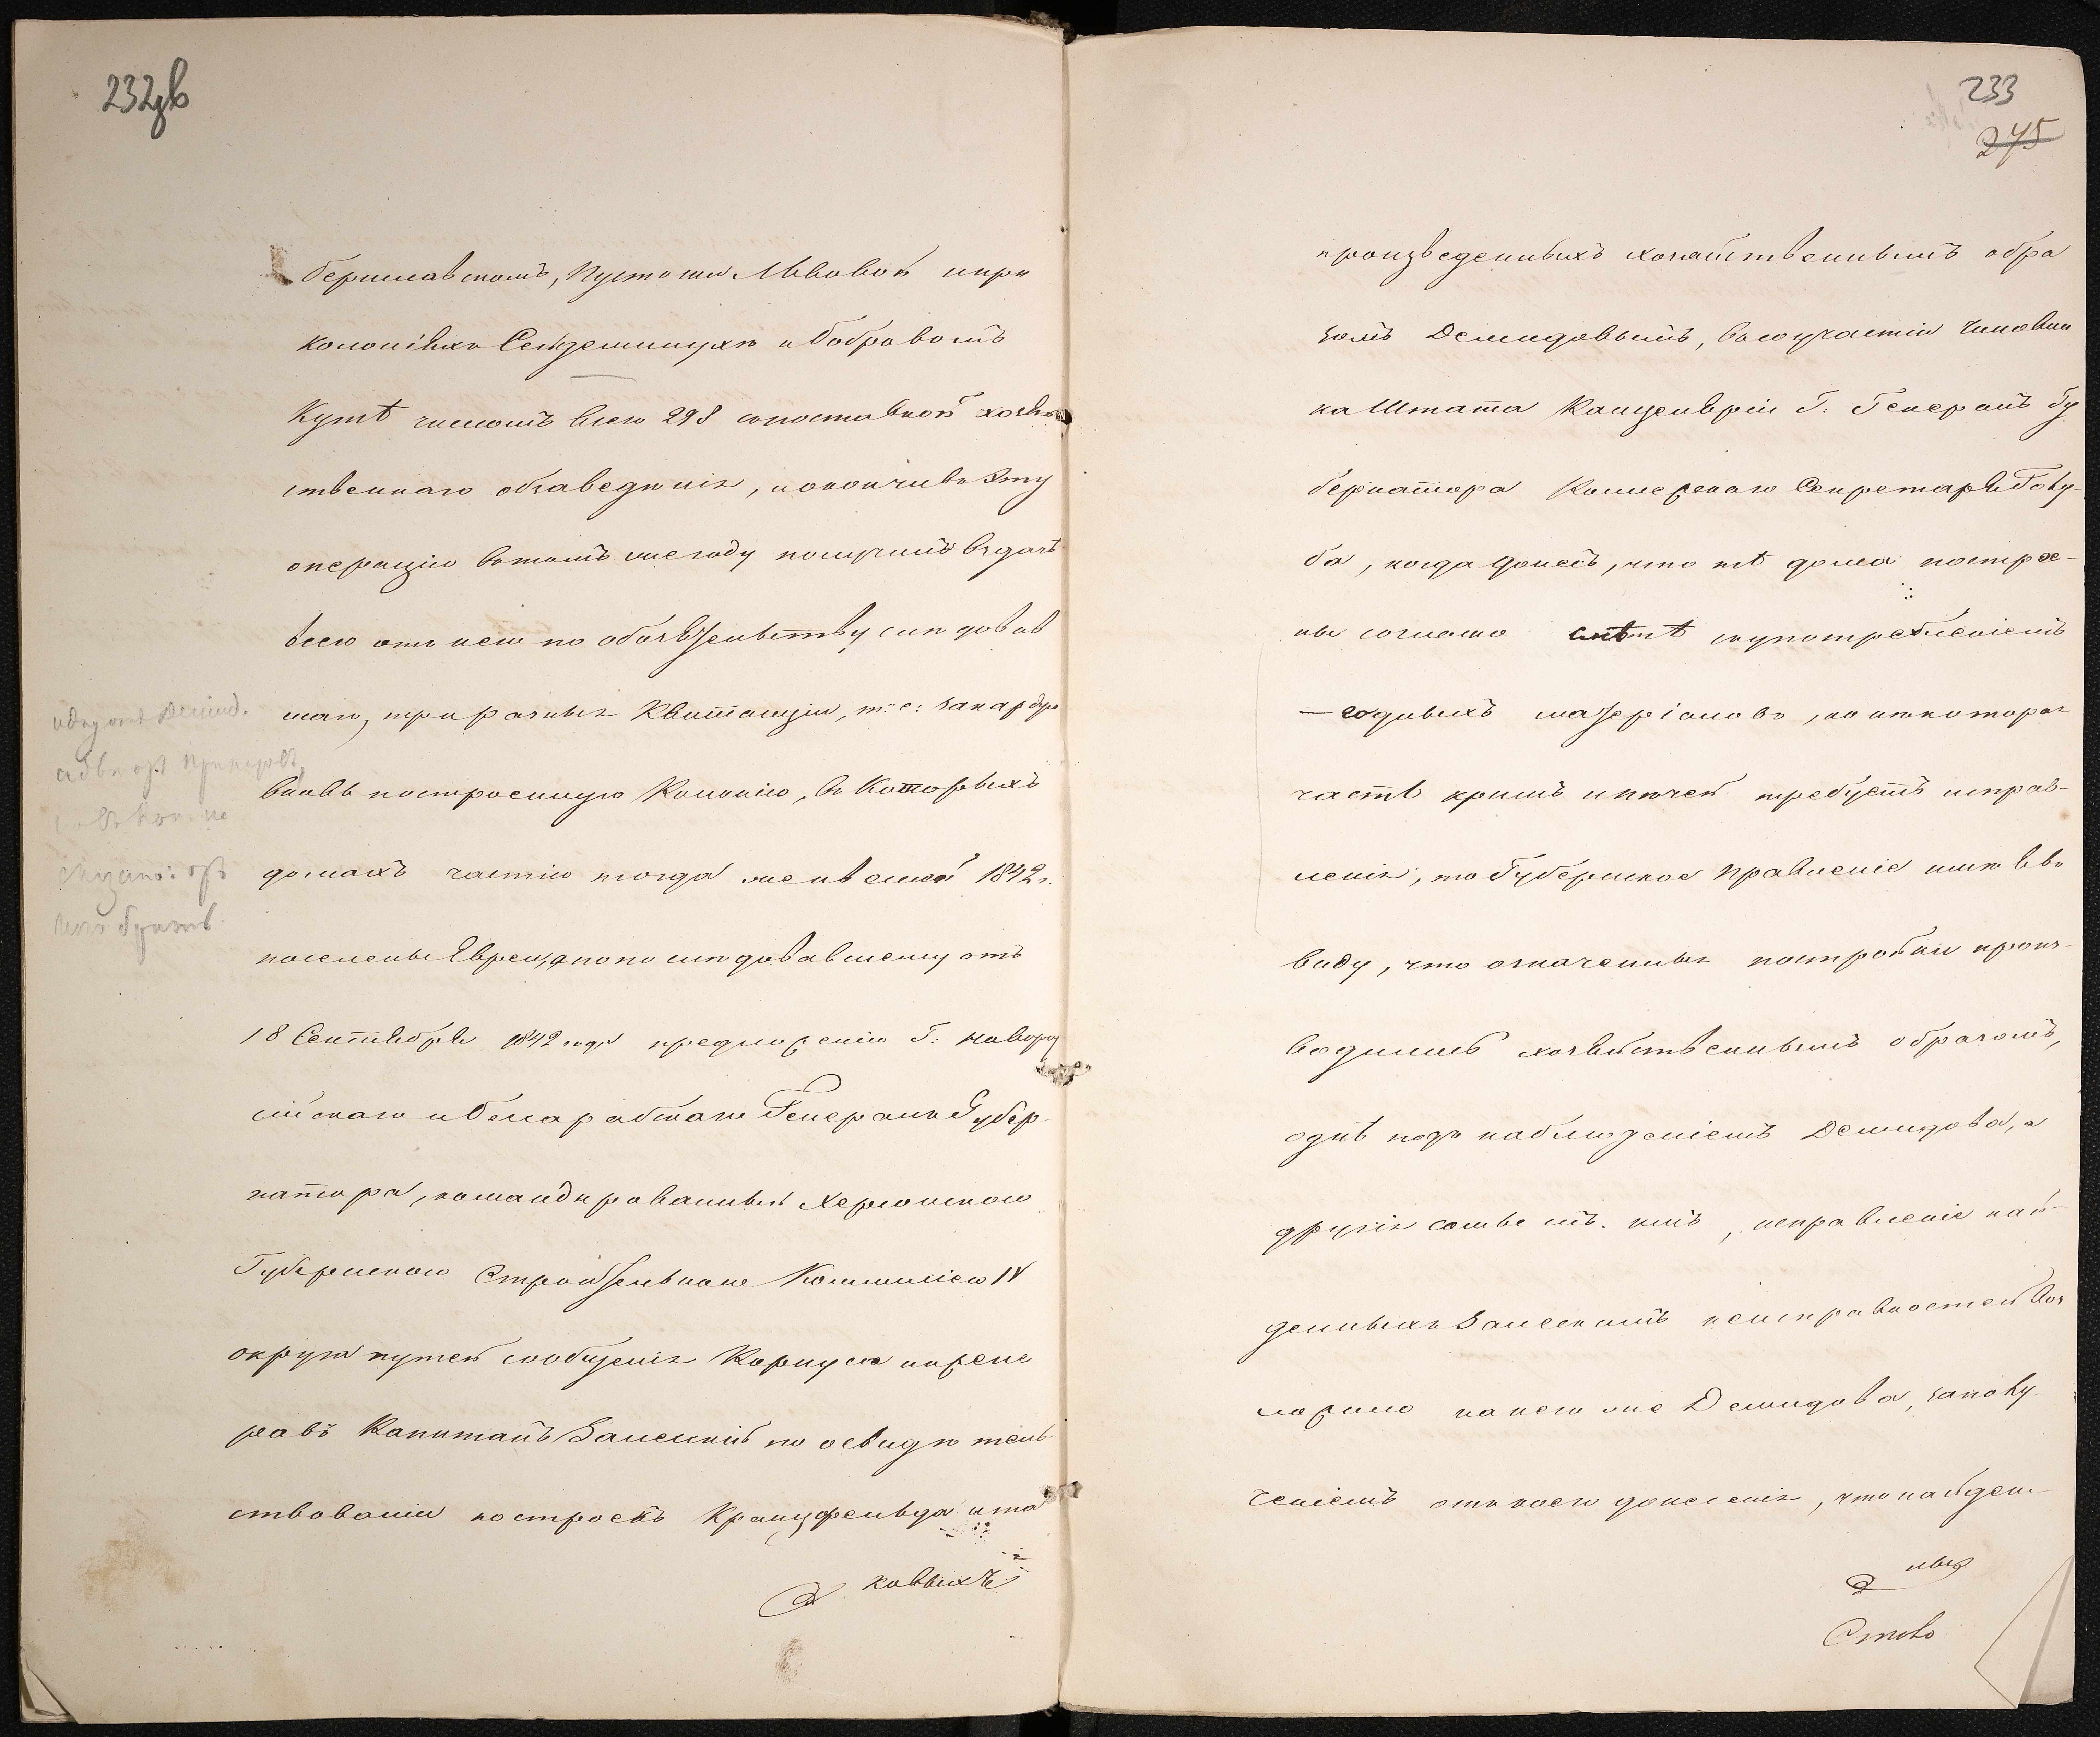 232дв
Бериславскомъ, Пустоши Львовой и при
колоніяхъ Сейдеминухѣ и Бобровомъ
Кутѣ числомъ всего 298 съ поставкой хозяй
ственнаго обзаведенія, и окончивъ эту
операцію въ томъ же году получилъ въ дачѣ
всего отъ него по обязательству слѣдовав
шаго, три разныя Квитанціи, т: е: за каждую
вновь построенную Колонію, въ которыхъ
домахъ частію тогда же въ 1842 г.
поселены Евреи, а по послѣдовавшему отъ
18 Сентября 1842 года предложенію Г: Новорос
сійскаго и Бессарабскаго Генералъ Губер-
натора, командированный Херсонскою
Губернскою Строительною Коммисіею IV
округа путей сообщенія Корпуса инжене
ровъ Капитанъ Залескій по освидѣтель-
ствованіи построекъ
ковыхъ
233
275
произведенныхъ хозяйственнымъ обра
зомъ Демидовымъ, въ соучастіи Чиновни
ка Штата Канцеляріи Г: Генералъ Гу
бернатора Коллежскаго Секретаря Голу-
ба, когда донесъ, что тѣ дома построе-
ны согласно смѣтѣ съ употребленіемъ
годныхъ матеріаловъ, но нѣкоторая
часть крышъ и печей требуетъ исправ-
ленія, то Губернское Правленіе имѣя въ
виду, что означенныя постройки произ-
водились хозяйственнымъ образомъ,
однѣ подъ наблюденіемъ Демидова, а
другія совмѣстно съ нимъ, исправленіе най-
денныхъ Залескимъ неисправностей воз
ложило на него же Демидова, за полу-
ченіемъ отъ коего донесенія, что найден-
ныя